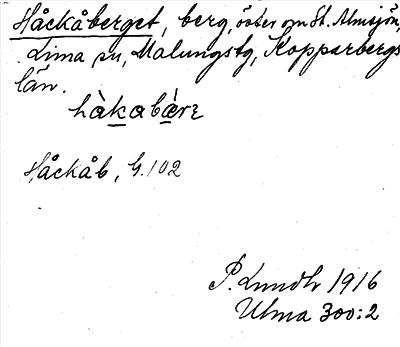 Håckåberget, berg, öster om St. Almsjön,
Lima sn, Malungs tg, Kopparbergs
län.
hàkabære
Håckåb, G. 102
P. Lundh 1916
Ulma 300:2